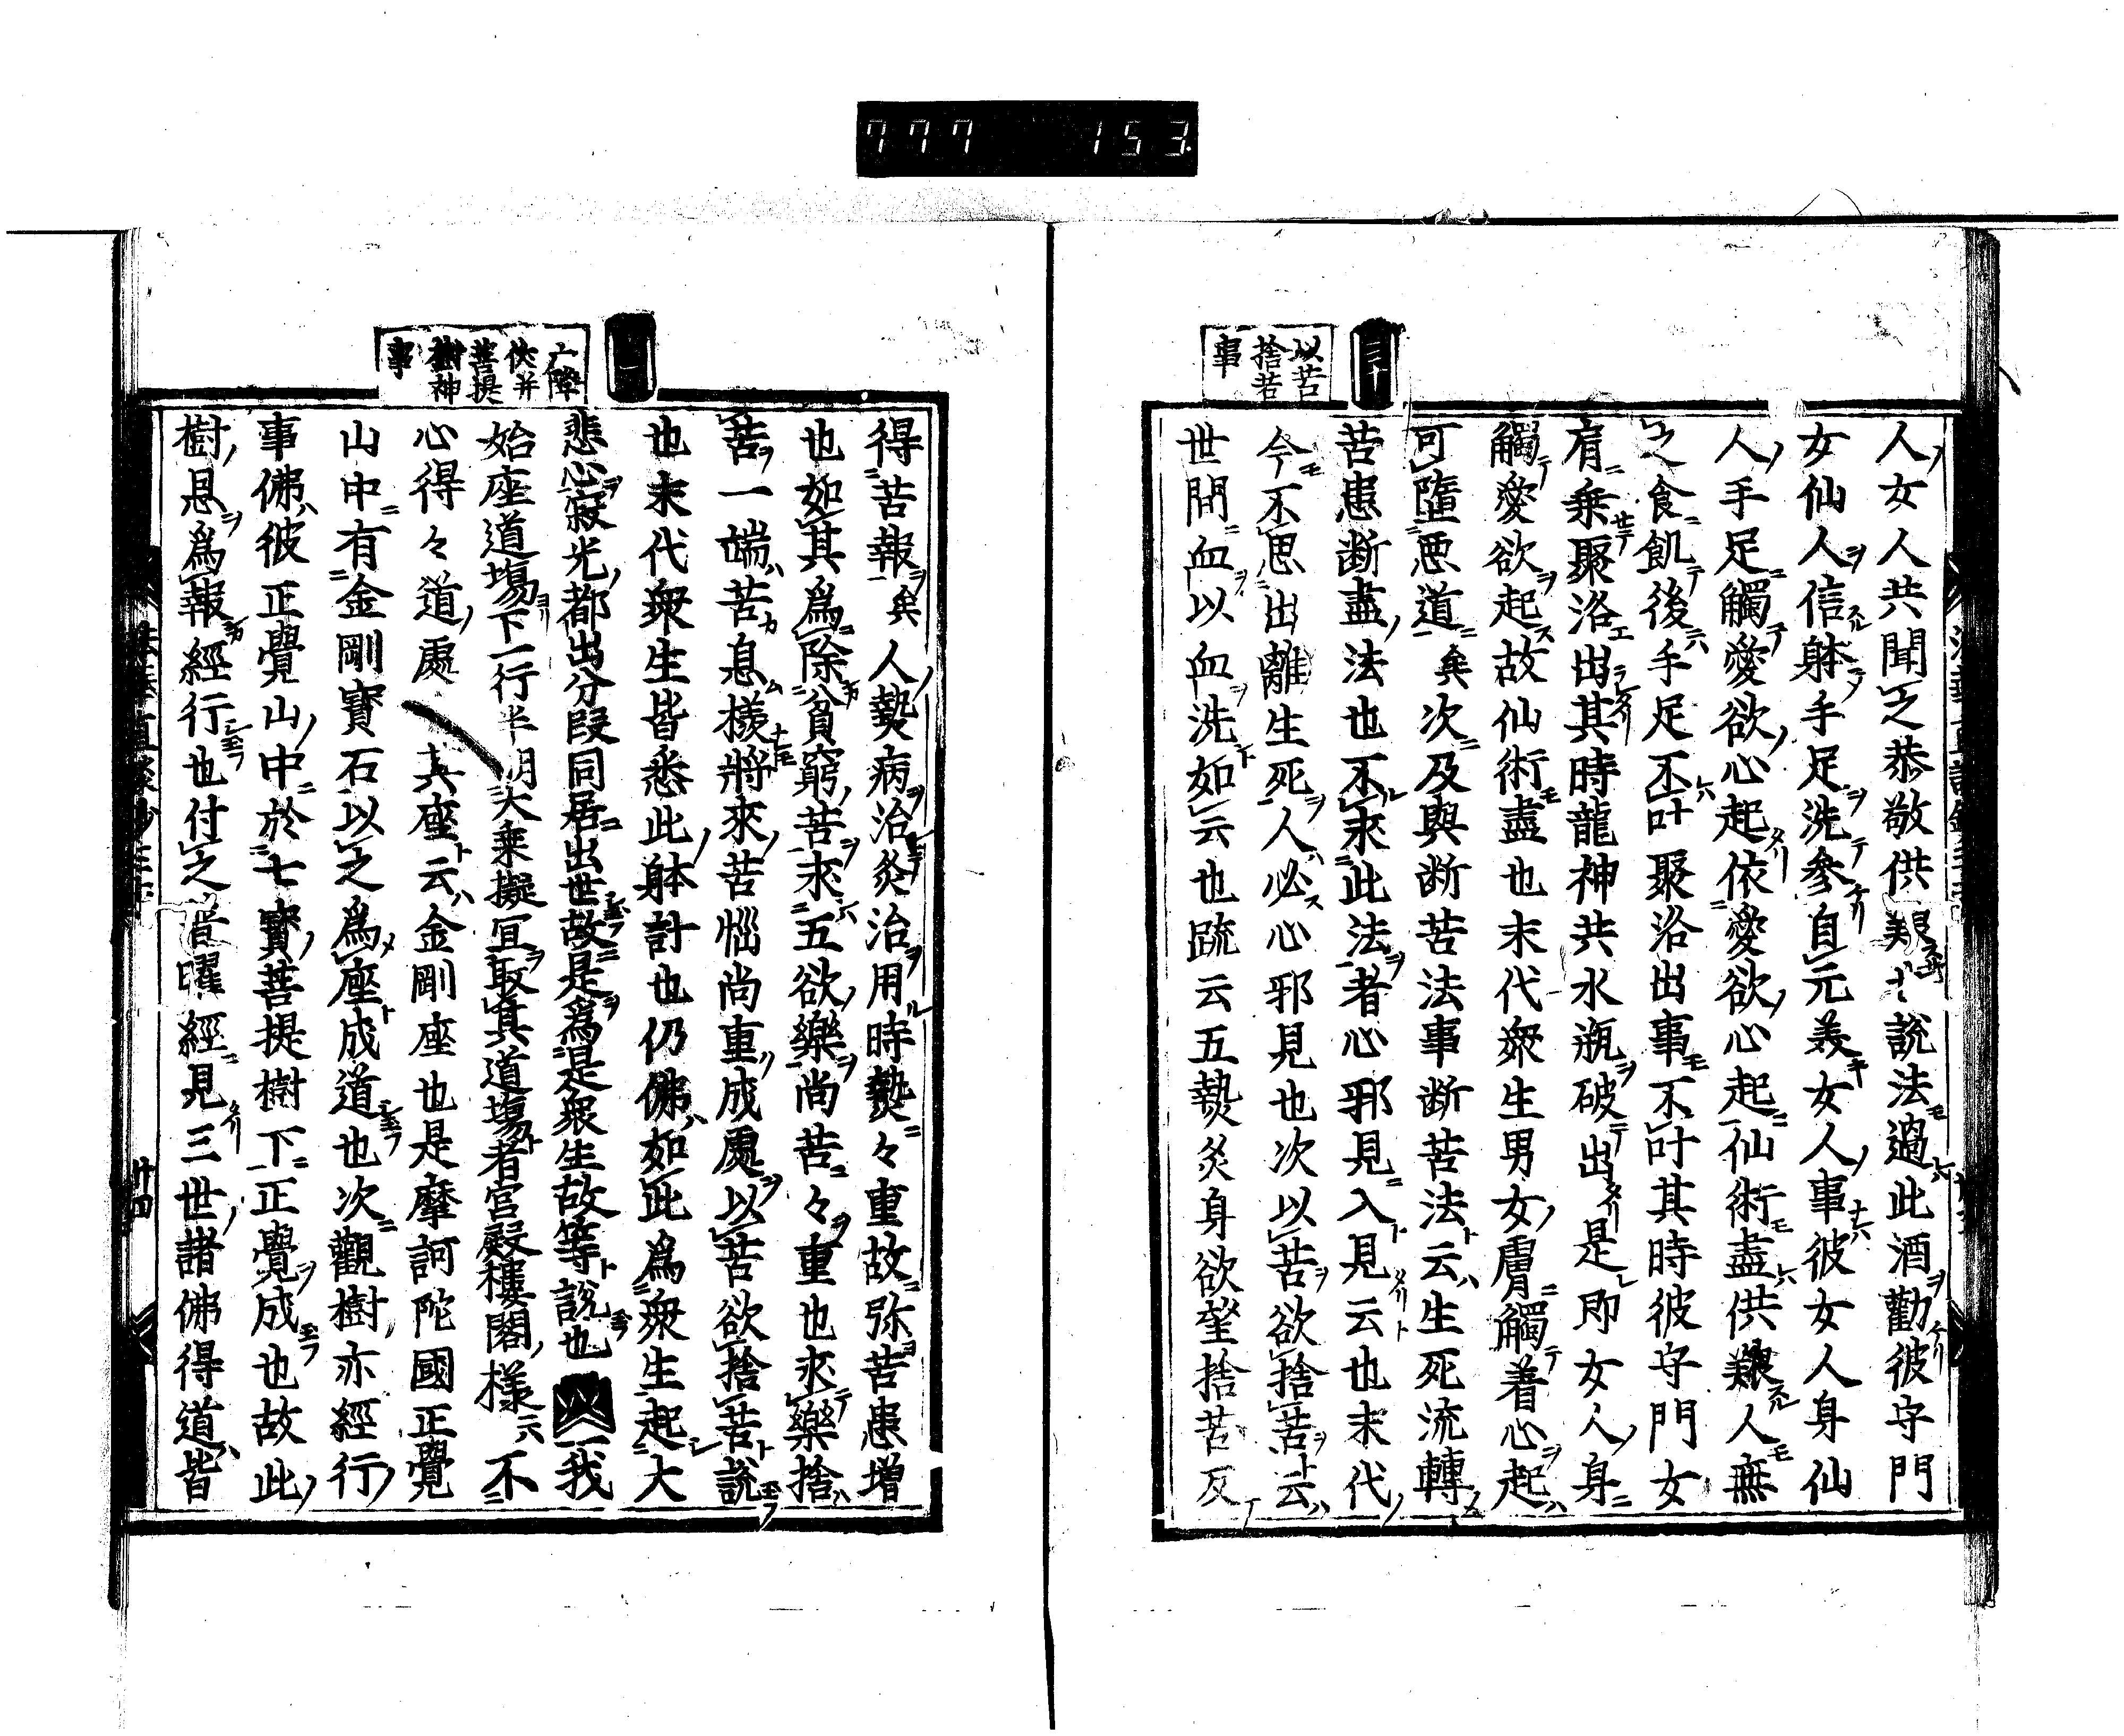 777 153
以苦
捨苦
事
人女人共聞之恭敬供難說法過此酒勸彼守門
女仙人信躰手足洗參自元美女人事彼女人身仙
人手足觸愛欲心起依愛欲心起仙術盡供難人無
之食飢後手足不叶聚洛出事不叶其時彼守門女
有乗聚洛出其時龍神共水瓶破出是即女人身
觸愛欲起故仙術盡也末代衆生男女膚觸着心起
可墮悪道矣次及與断苦法事断苦法云生死流轉
苦患断盡法也不求此法者心邪見入見云也末代
今不思出離生死人必心邪見也次以苦欲捨苦云
世間血以血洗如云也䟽云五𤍠炙身欲望捨苦反
亡障
佚并
菩提
樹神
事
得苦報矣人𤍠病治灸治用時𤍠々重故弥苦患增
也如其爲除貧窮苦求五欲樂尚苦々重也求樂捨
苦一端苦息樣將來苦惱尚重成處以苦欲捨苦說
也末代衆生皆悉此躰計也仍佛如此爲衆生起大
悲心寂光都出分段同居出世故是爲是衆生故等說也 我
始座道塲下一行半明大乗擬冝取其道塲者宮殿樓閣樣不
心得々道處 其座云金剛座也是摩訶陀國正覺
山中有金剛寶石以之爲座成道也次觀樹亦經行
事佛彼正覺山中於七寶菩提樹下正覺成也故此
樹恩爲報經行也付之 曜經見三世諸佛得道皆
廿四